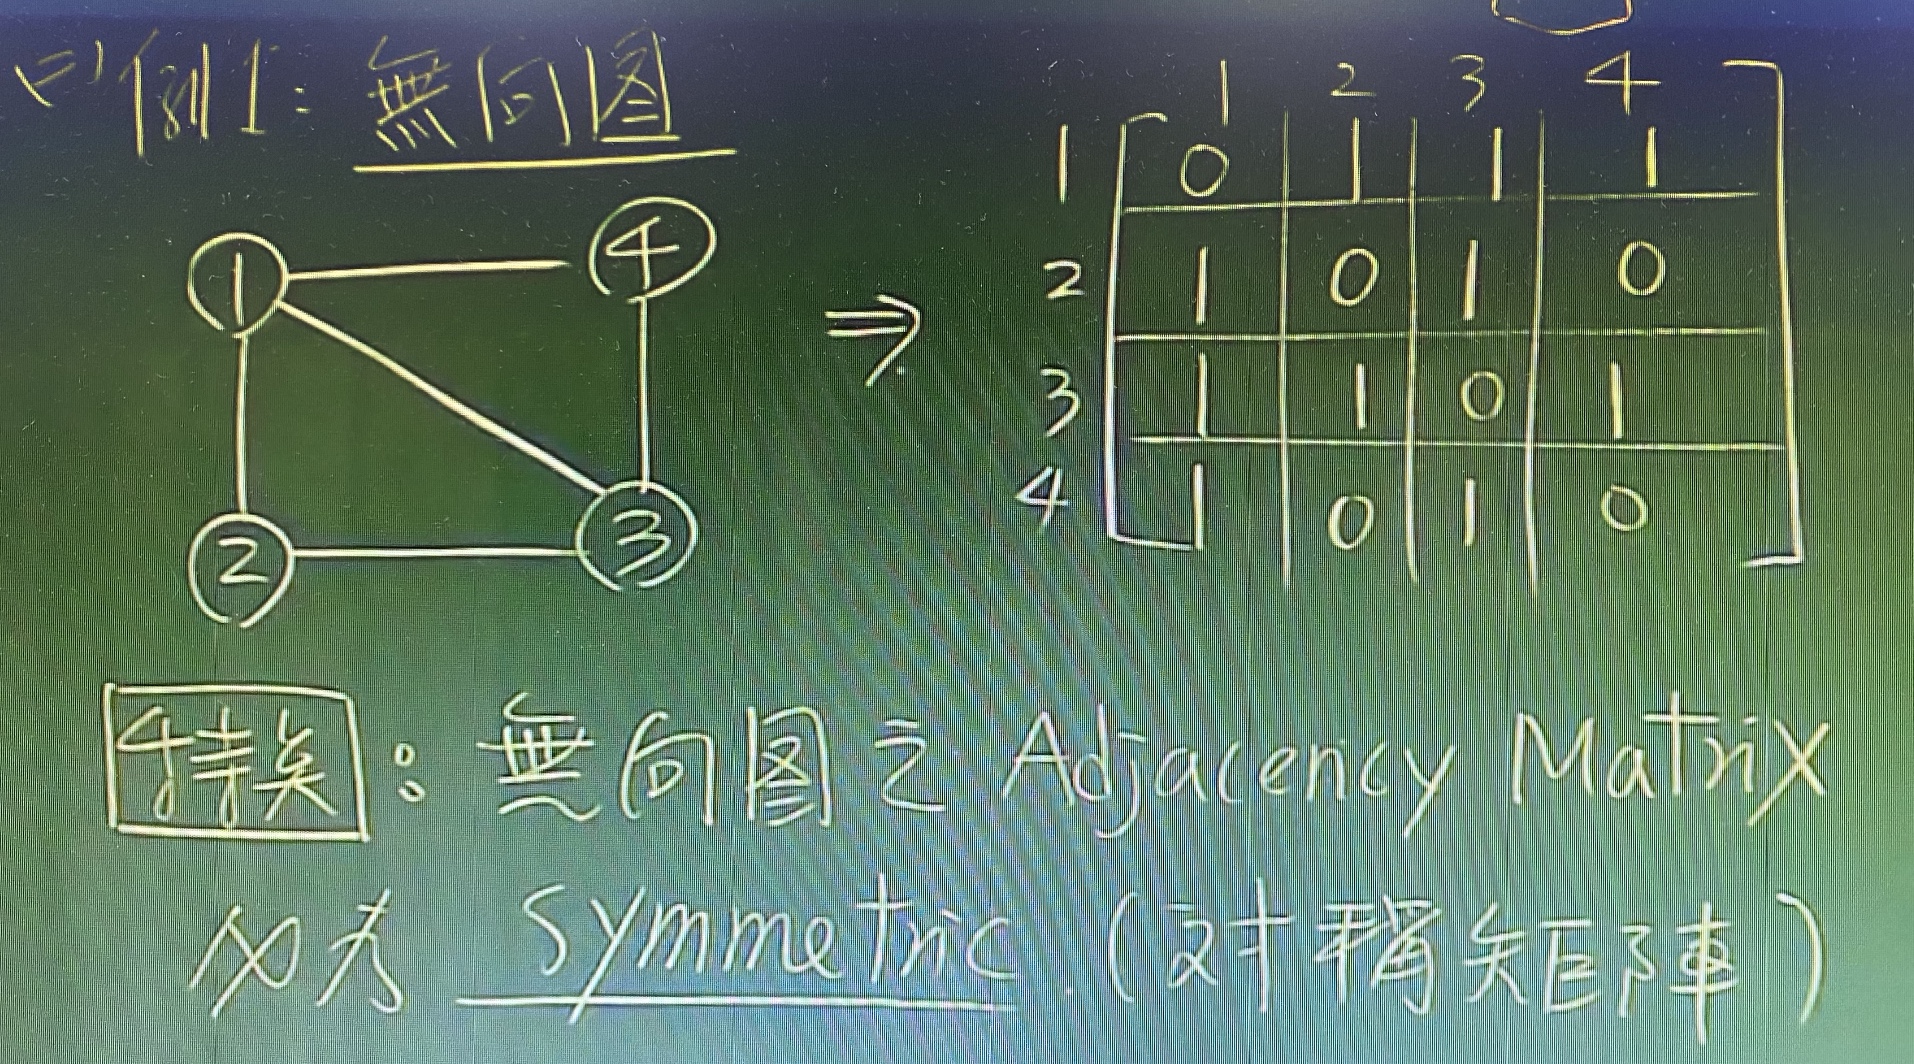 (二) 例1: 無向图
1 2 3 4
1 0 1 1 1
2 1 0 1 0
3 1 1 0 1
4 1 0 1 0
① ④
② ③
⇒
特点: 無向图之 Adjacency Matrix
必为 Symmetric (对稱矩陣)